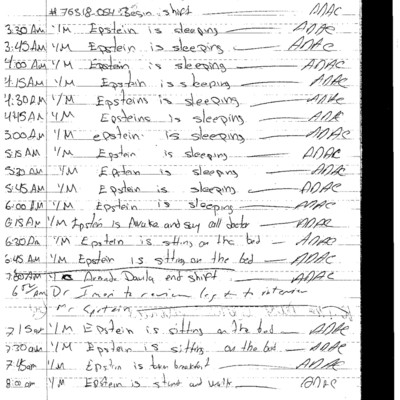 #76318-054 Begin shift ADAC
3:30 AM I/M Epstein is sleeping ADAC
3:45 AM I/M Epstein is sleeping ADAC
4:00 AM I/M Epstein is sleeping ADAC
4:15 AM I/M Epstein is sleeping ADAC
4:30 AM I/M Epsteins is sleeping ADAC
4:45 AM I/M Epsteins is sleeping ADAC
5:00 AM I/M epstein is sleeping ADAC
5:15 AM I/M Epstein is sleeping ADAC
5:30 AM I/M Epstein is sleeping ADAC
5:45 AM I/M Epstein is sleeping ADAC
6:00 AM I/M Epstein is sleeping ADAC
6:15 AM I/M Epstein is Awake and say call doctor ADAC
6:30 AM I/M Epstein is sitting on the bed ADAC
6:45 AM I/M Epstein is sitting on the bed ADAC
7:00 AM end shift ADAC
AM Dr to review log & to interview
Mr Epstein
7:15 AM I/M Epstein is sitting on the bed ADAC
7:30 AM I/M Epstein is sitting on the bed ADAC
7:45 AM I/M Epstein is breakfast ADAC
8:00 AM I/M Epstein is and walk ADAC